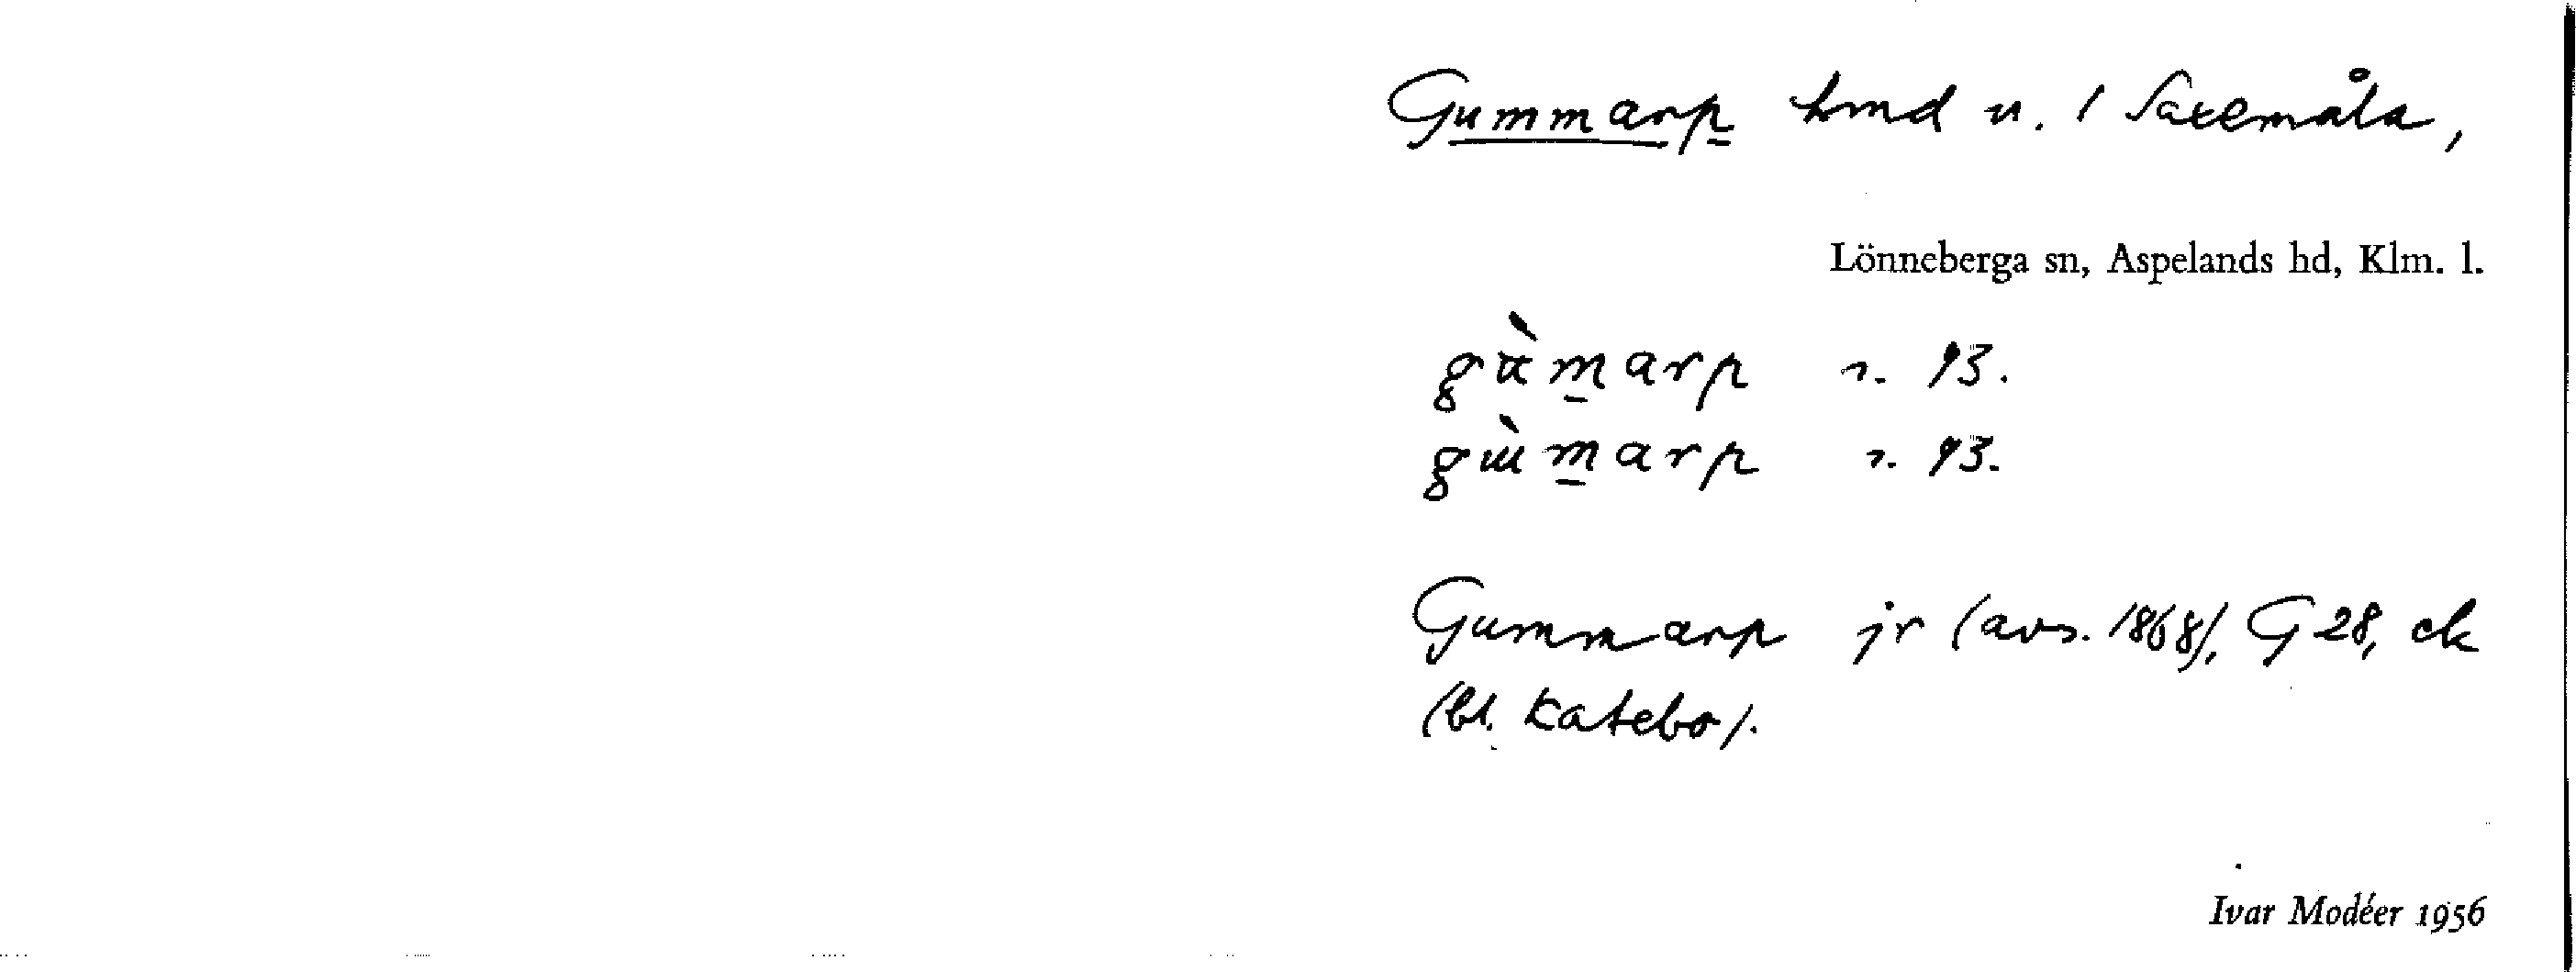 Gummarp hmd u. / Saxemåla,
Lönneberga sn, Aspelands hd, Klm. l.
gùmarp r. 93.
gùmarp r. 93.
Gummarp jr (avs. 1868), G 28, ek
(bl. Katebo).
Ivar Modéer 1956